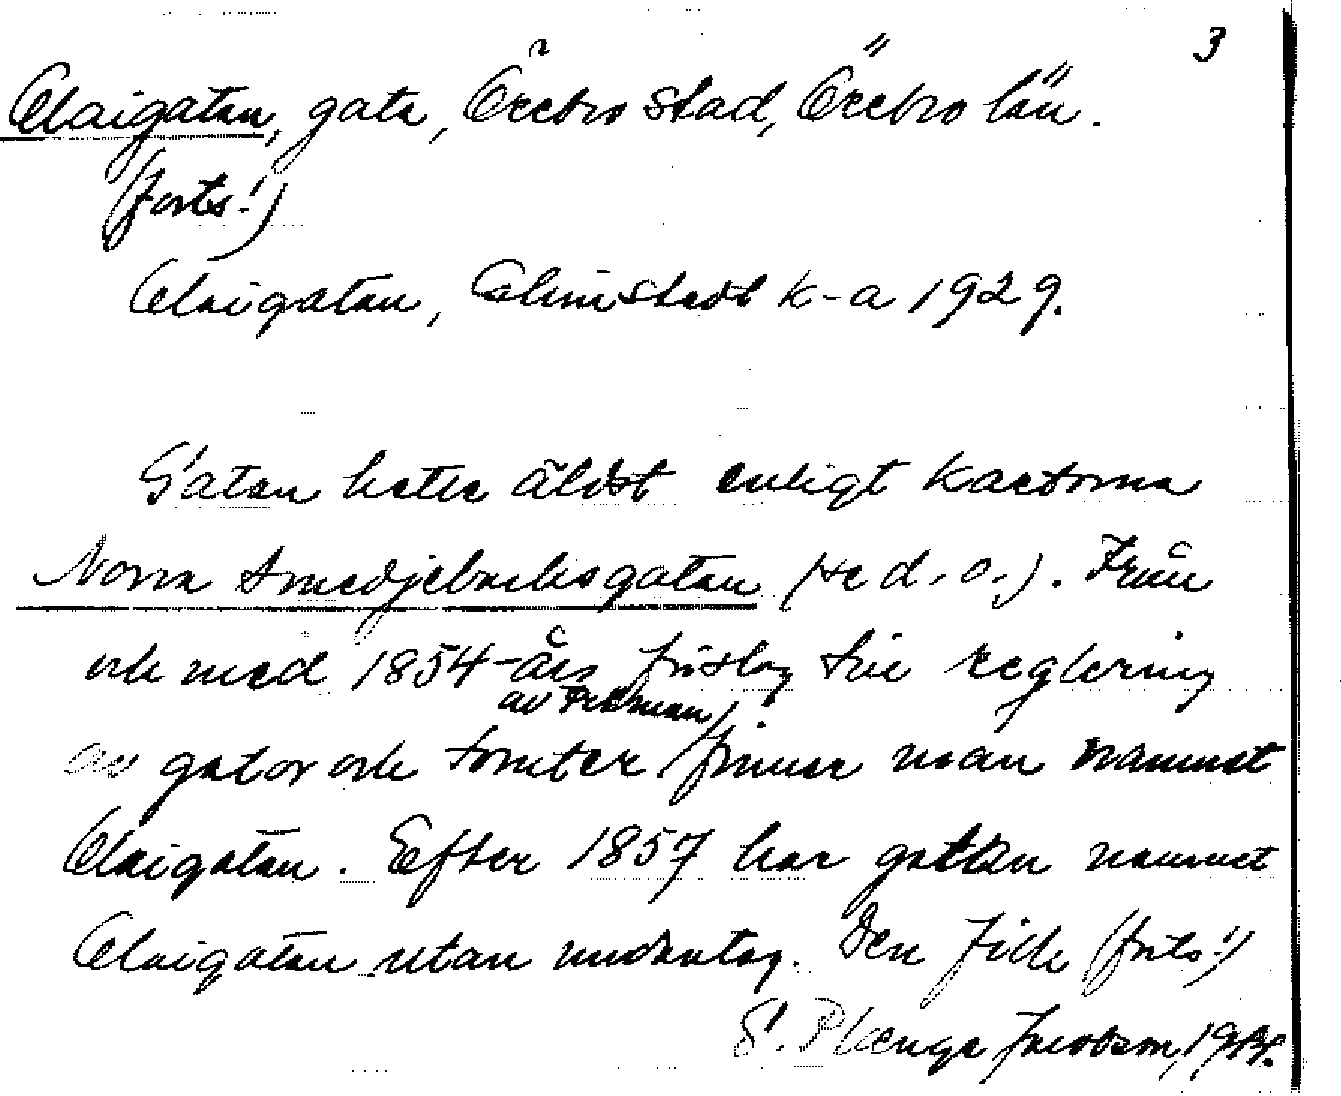 3
Claigatan, gata, Örebro stad, Örebro län.
(forts!)
Claigatan, Almstedt k-a 1929.
Gatan heter äldst enligt kartorna
Norra Smedjebacksgatan (se d. o.). Från
och med 1854-års förslag till reglering
av Fredman
av gator och tomter finner man namnet
Claigatan. Efter 1857 har gatan namnet
Claigatan utan undantag. Den fick (forts!)
S. Plænge Jacobson,